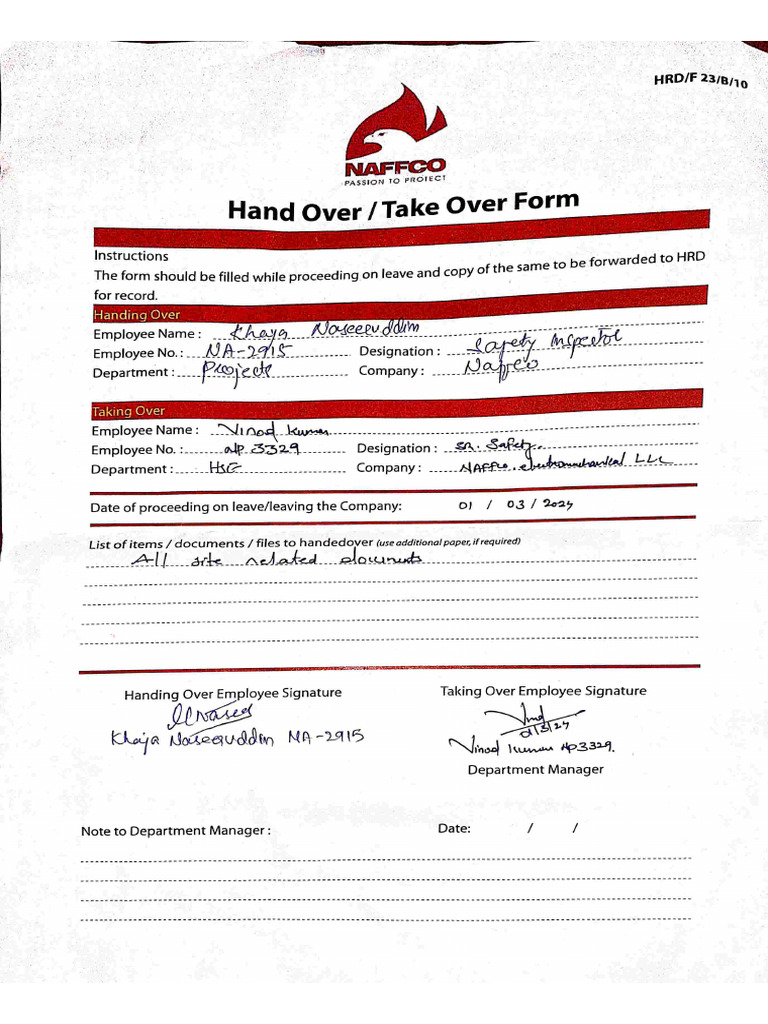 HRD/F 23/B/10
NAFFCO
PASSION TO PROTECT
Hand Over / Take Over Form
Instructions
The form should be filled while proceeding on leave and copy of the same to be forwarded to HRD
for record.
Handing Over
Employee Name : Khaja Naseeruddin
Employee No. : NA-2915 Designation : Safety Inspector
Department : Projects Company : Naffco
Taking Over
Employee Name : Vinod Kumar
Employee No. : 3329 Designation : SR. Safety
Department : HSE Company : NAFFCO electromechanical LLC
Date of proceeding on leave/leaving the Company: 01 / 03 / 2024
List of items / documents / files to handedover (use additional paper, if required)
All site related documents
Handing Over Employee Signature Taking Over Employee Signature
Khaja Naseeruddin NA-2915
Vinod Kumar 3329.
Department Manager
Note to Department Manager : Date: / /